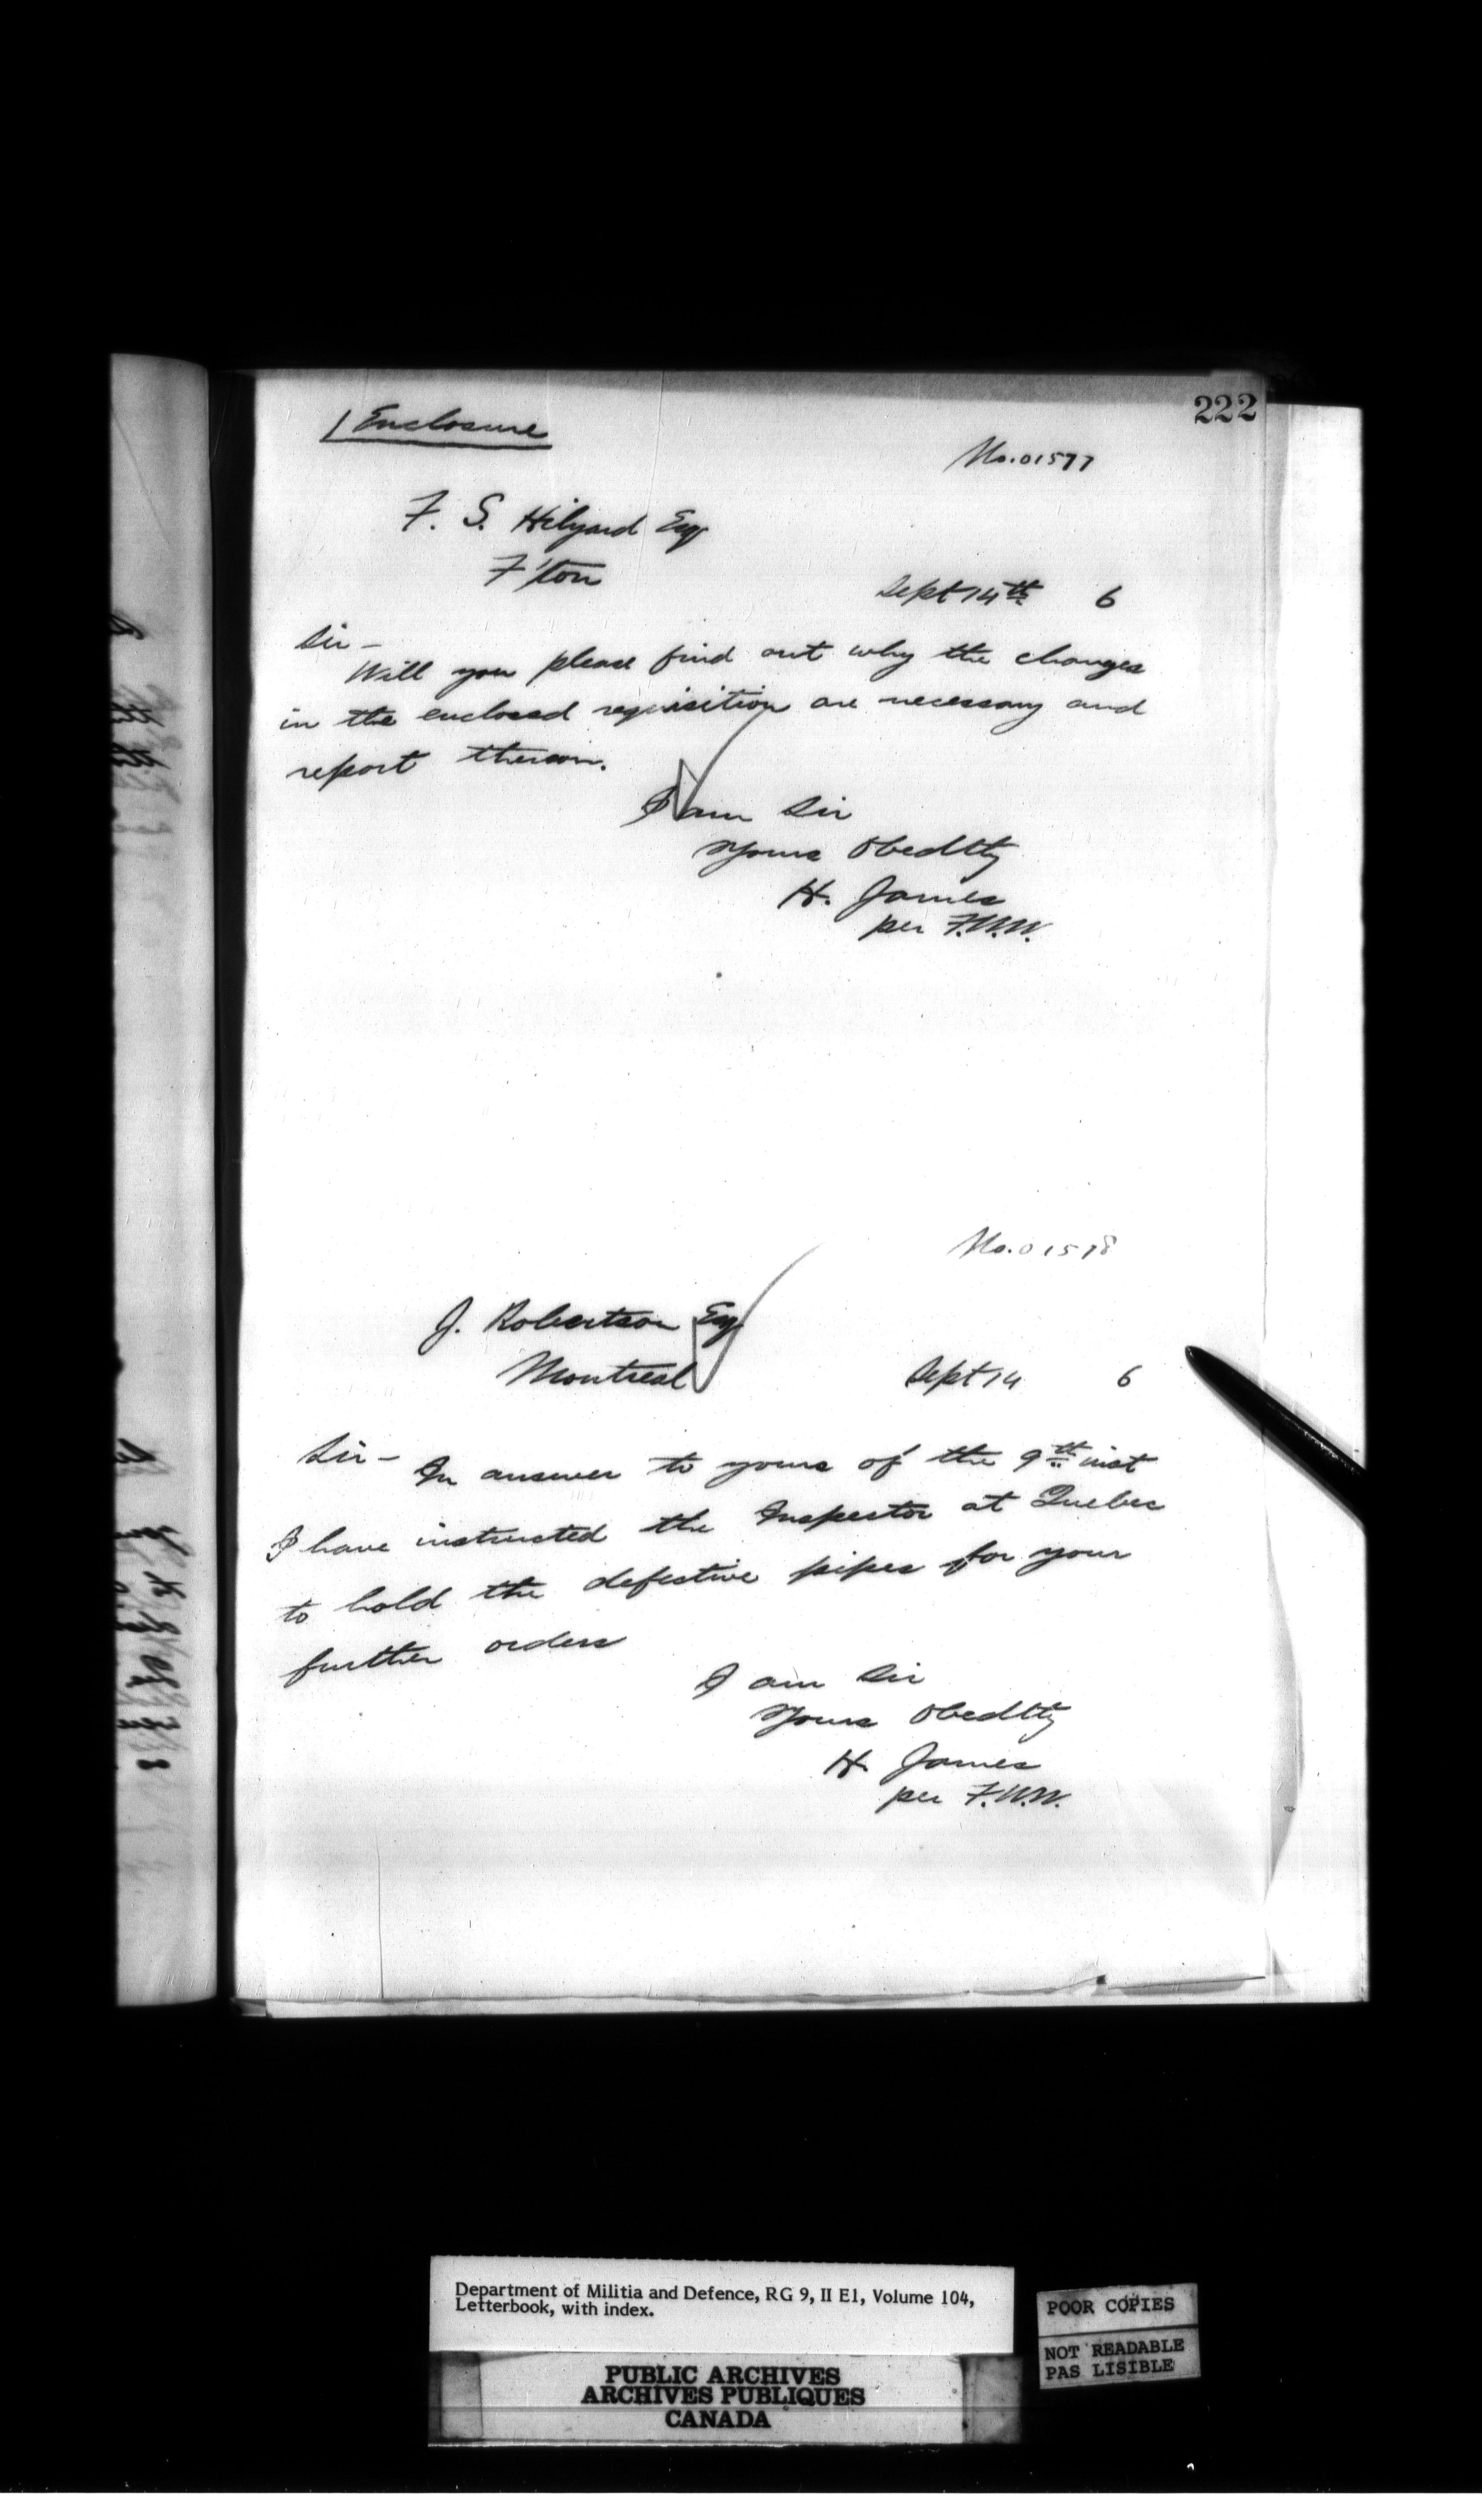 222
1 Enclosure
No. 01577
F. S. Hilyard Esq
F'ton
Sept 14th 6
Sir-
Will you please find out why the changes
in the enclosed requisition are necessary and
report thereon.
I am Sir
Yours Obedtly
H. James
per F.W.W.
No. 01578
J. Robertson Esq
Montreal
Sept 14 6
Sir- In answer to yours of the 9th inst
I have instructed the Inspector at Quebec
to hold the defective pipes for your
further orders
I am Sir
Yours Obedtly
H James
per F.W.W.
Department of Militia and Defence, RG 9, II E1, Volume 104,
Letterbook, with index.
POOR COPIES
NOT READABLE
PAS LISIBLE
PUBLIC ARCHIVES
ARCHIVES PUBLIQUES
CANADA